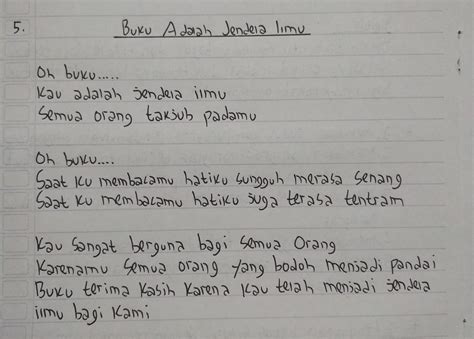 5. Buku Adalah Jendela Ilmu
Oh buku.....
Kau adalah jendela ilmu
Semua orang takjub padamu
Oh buku....
Saat ku membacamu hatiku sungguh merasa senang
Saat ku membacamu hatiku juga terasa tentram
Kau sangat berguna bagi semua orang
Karenamu semua orang yang bodoh menjadi pandai
Buku terima kasih karena kau telah menjadi jendela
ilmu bagi kami